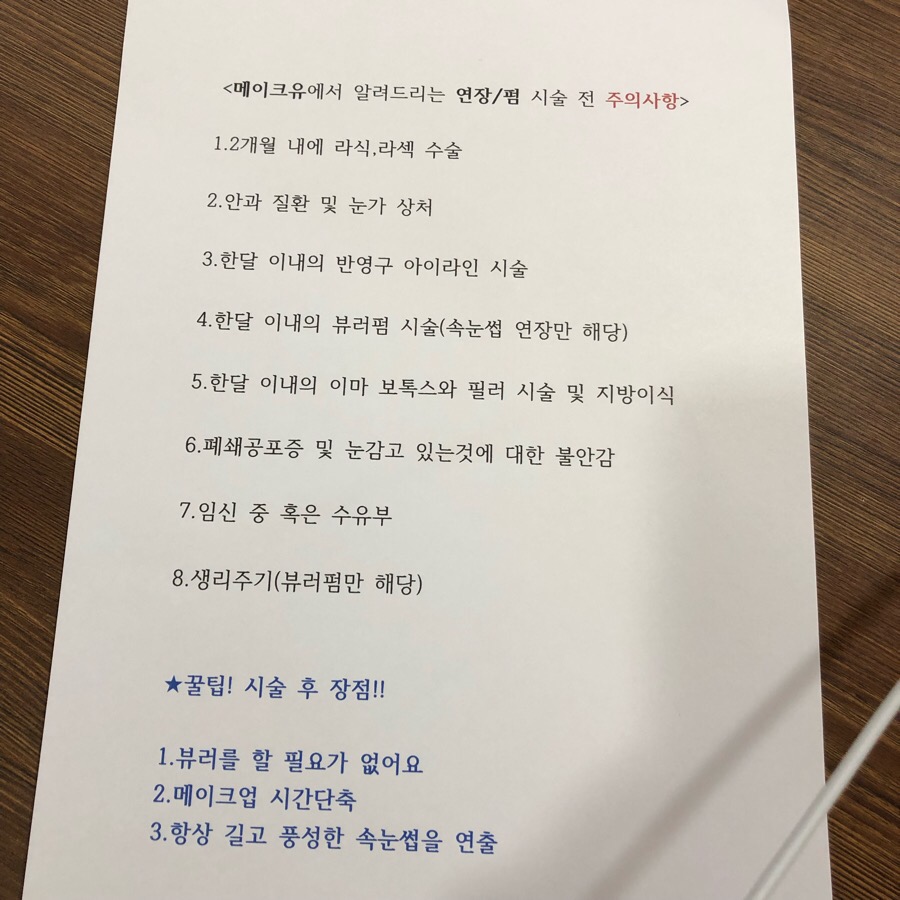 <메이크유에서 알려드리는 연장/펌 시술 전 주의사항>
1.2개월 내에 라식,라섹 수술
2.안과 질환 및 눈가 상처
3.한달 이내의 반영구 아이라인 시술
4.한달 이내의 뷰러펌 시술(속눈썹 연장만 해당)
5.한달 이내의 이마 보톡스와 필러 시술 및 지방이식
6.폐쇄공포증 및 눈감고 있는것에 대한 불안감
7.임신 중 혹은 수유부
8.생리주기(뷰러펌만 해당)
★꿀팁! 시술 후 장점!!
1.뷰러를 할 필요가 없어요
2.메이크업 시간단축
3.항상 길고 풍성한 속눈썹을 연출